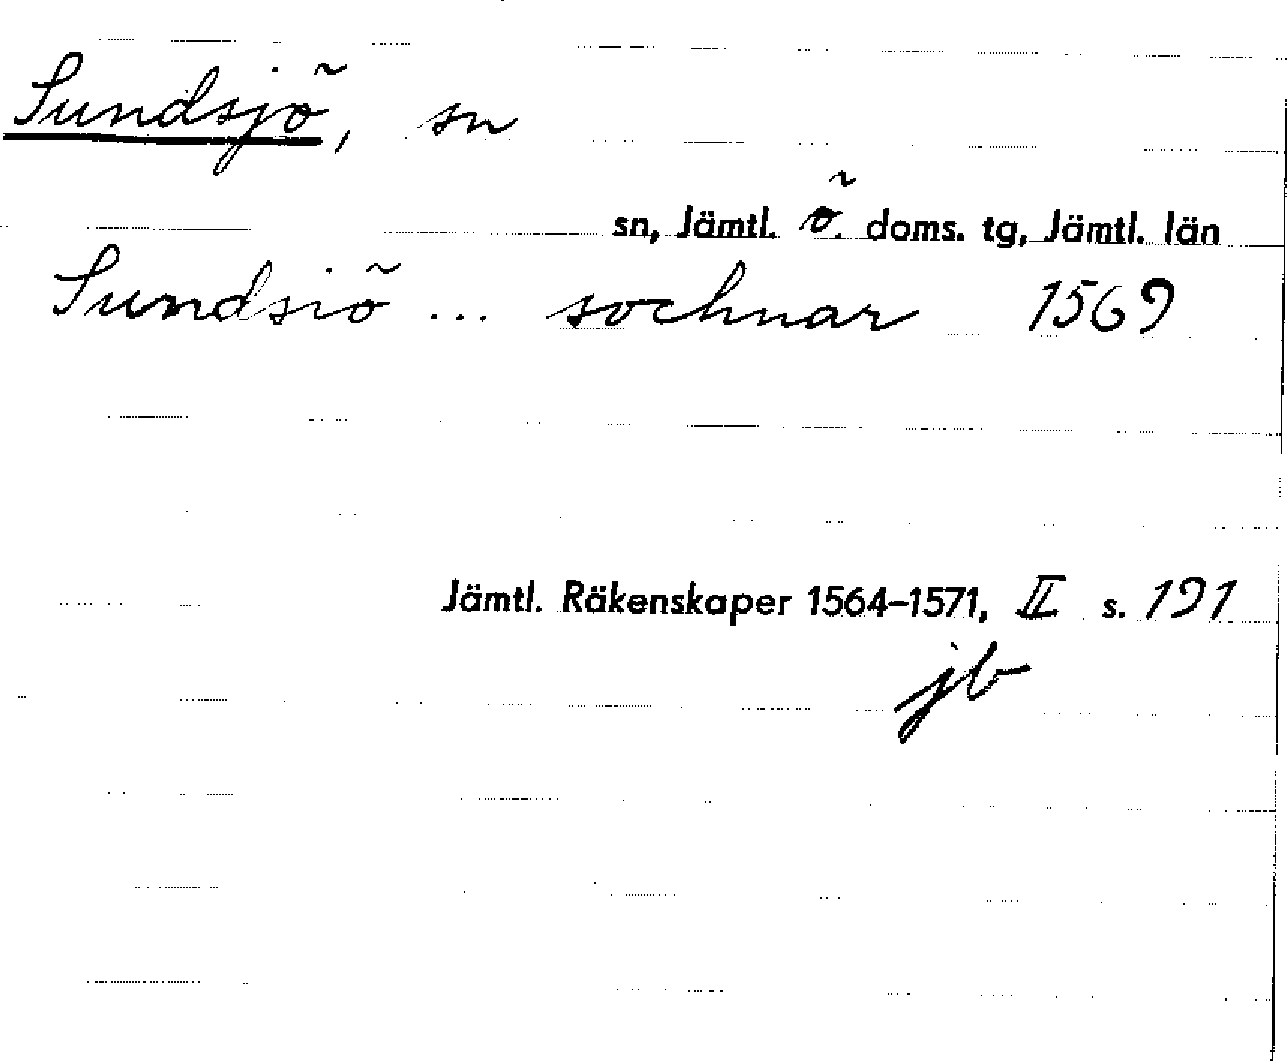 Sundsjö, sn
sn, Jämtl. ö. doms. tg, Jämtl. län
Sundsiö ... sochnar 1569
Jämtl. Räkenskaper 1564–1571, II s. 191
jb